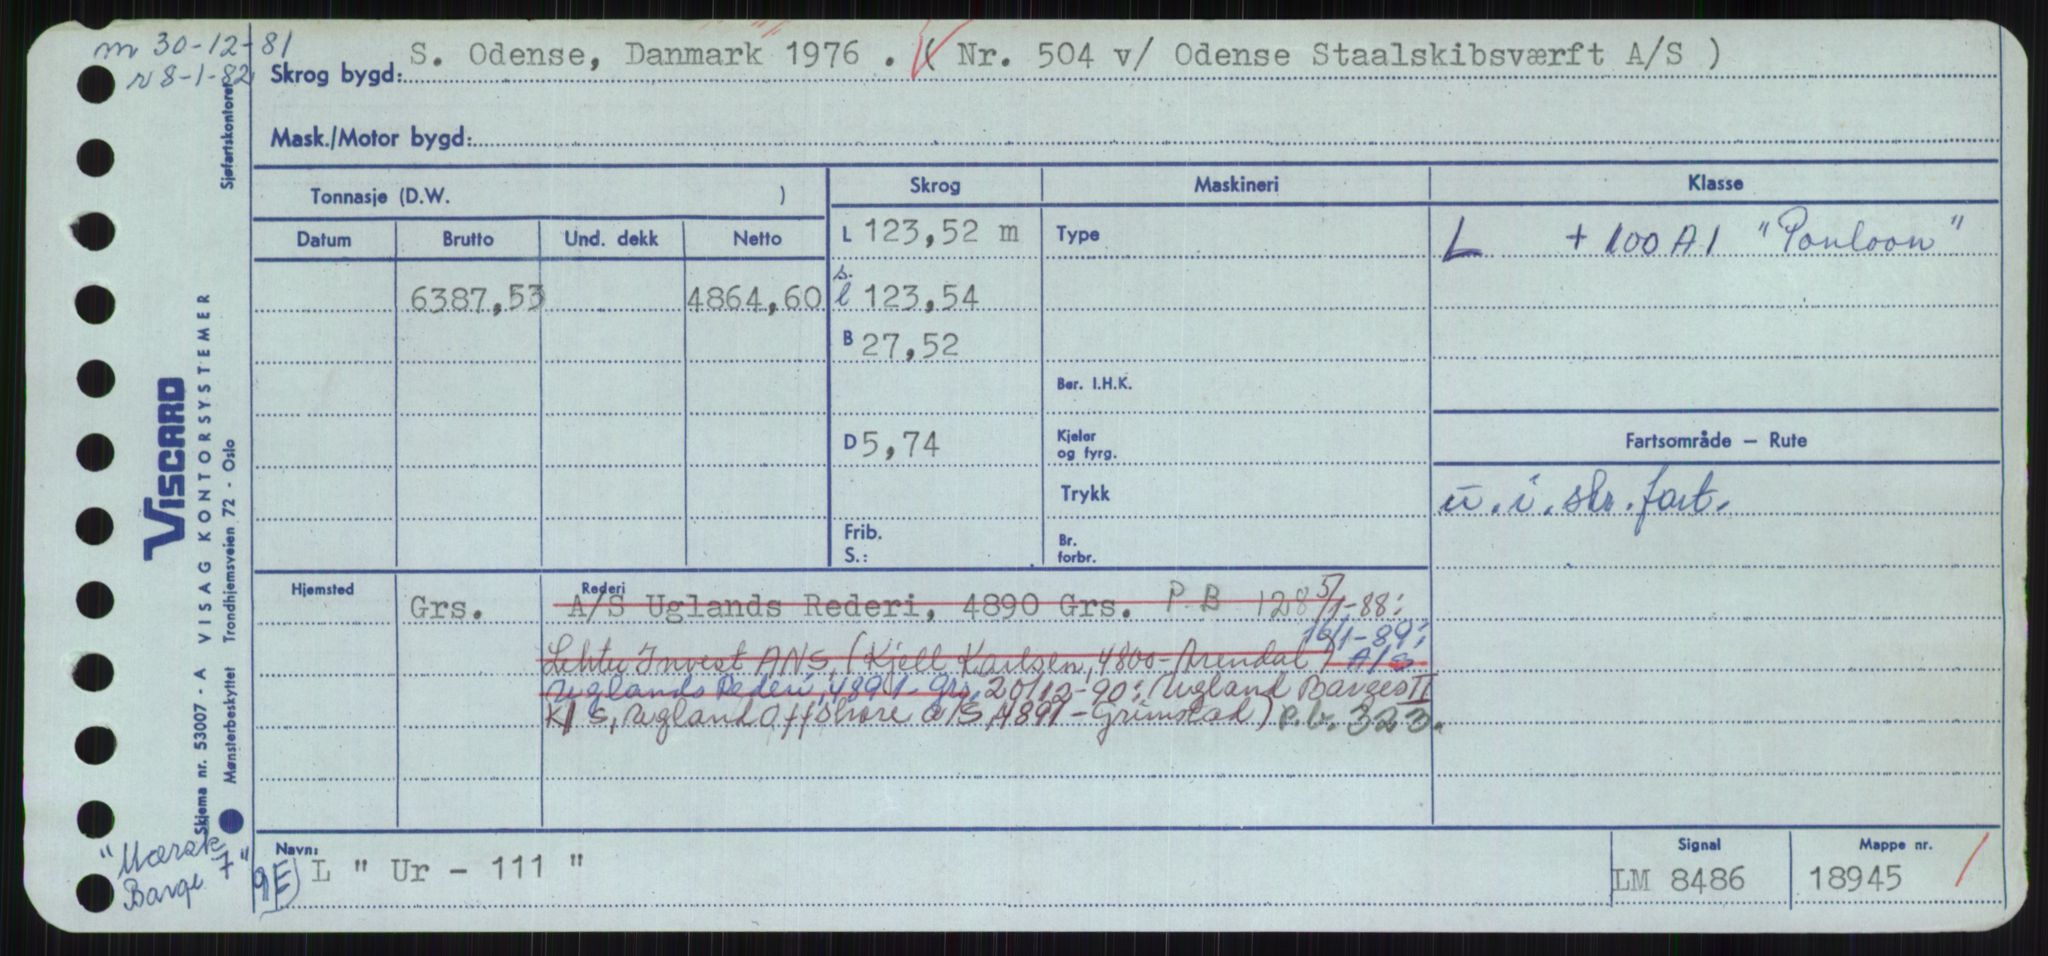 m 30-12-81
r 8-1-82
Skrog bygd: S. Odense, Danmark 1976 . ( Nr. 504 v/ Odense Staalskibsværft A/S )
Mask./Motor bygd:
Tonnasje (D.W. )
Skrog
Maskineri
Klasse
Datum
Brutto
Und. dekk
Netto
L 123,52 m
Type
L + 100 A 1 "Pontoon"
6387,53
4864,60
s.
l 123,54
B 27,52
Ber. I.H.K.
D 5,74
Kjeler
og fyrg.
Fartsområde – Rute
Trykk
u. i. skr. fart.
Frib.
S.:
Br.
forbr.
Hjemsted
Grs.
Rederi
A/S Uglands Rederi, 4890 Grs. P.B 128 5/1-88:
16/1-89:
Lehtu Invest ANS, (Kjell Karlsen, 4800-Arendal) A/S
Uglands Rederi, 4891-Grs, 20/12-90: Ugland Barges II
K/S, Ugland Offshore a/s, 4891-Grimstad) p.b. 323.
Navn:
L " Ur - 111 "
Signal
LM 8486
Mappe nr.
18945
"Mærsk
Barge 7"
9E
VISCARD
Skjema nr. 53007 - A VISAG KONTORSYSTEMER
Mønsterbeskyttet Trondhjemsveien 72 - Oslo
Sjøfartskontoret